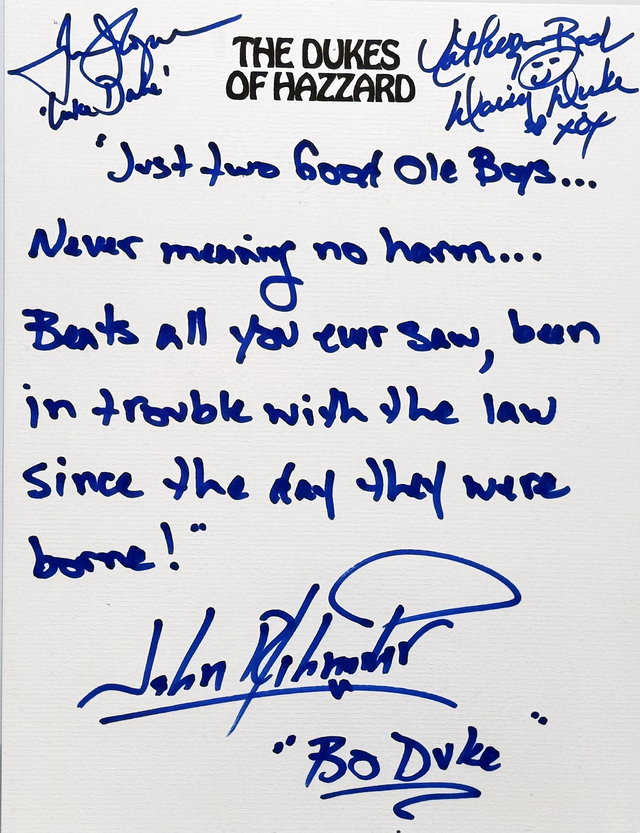 THE DUKES
OF HAZZARD
'Luke Duke'
Catherine Bach
Daisy Duke
xox
"Just two Good Ole Boys...
Never meaning no harm...
Beats all you ever saw, been
in trouble with the law
since the day they were
borne!"
John Schneider
"Bo Duke"